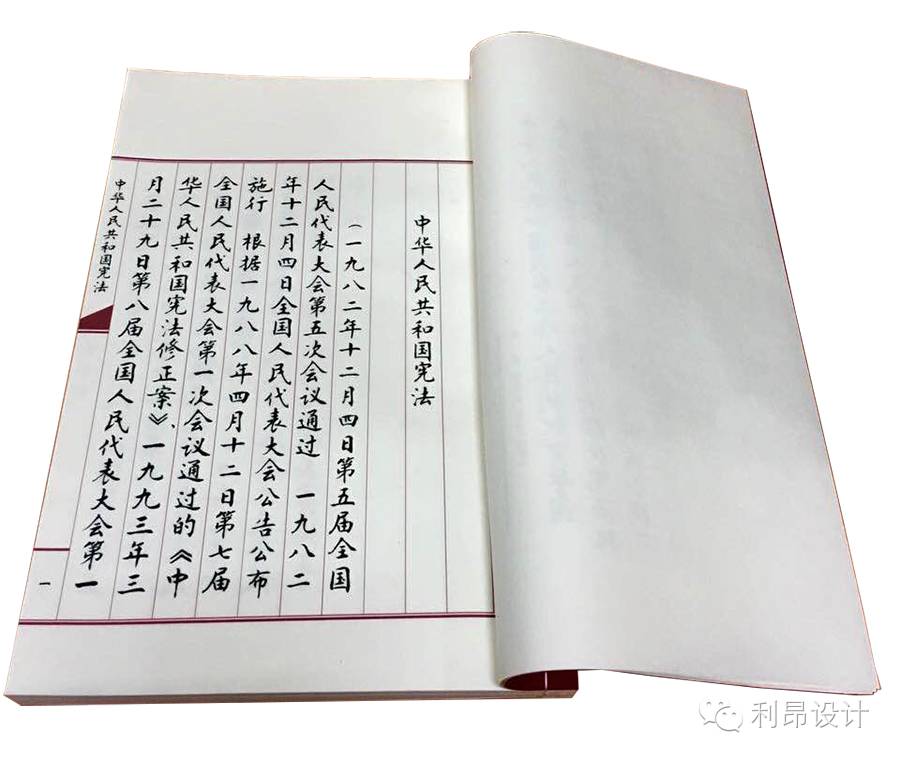 中华人民共和国宪法
（一九八二年十二月四日第五届全国
人民代表大会第五次会议通过　一九八二
年十二月四日全国人民代表大会公告公布
施行　根据一九八八年四月十二日第七届
全国人民代表大会第一次会议通过的《中
华人民共和国宪法修正案》、一九九三年三
月二十九日第八届全国人民代表大会第一
中华人民共和国宪法
一
利昂设计